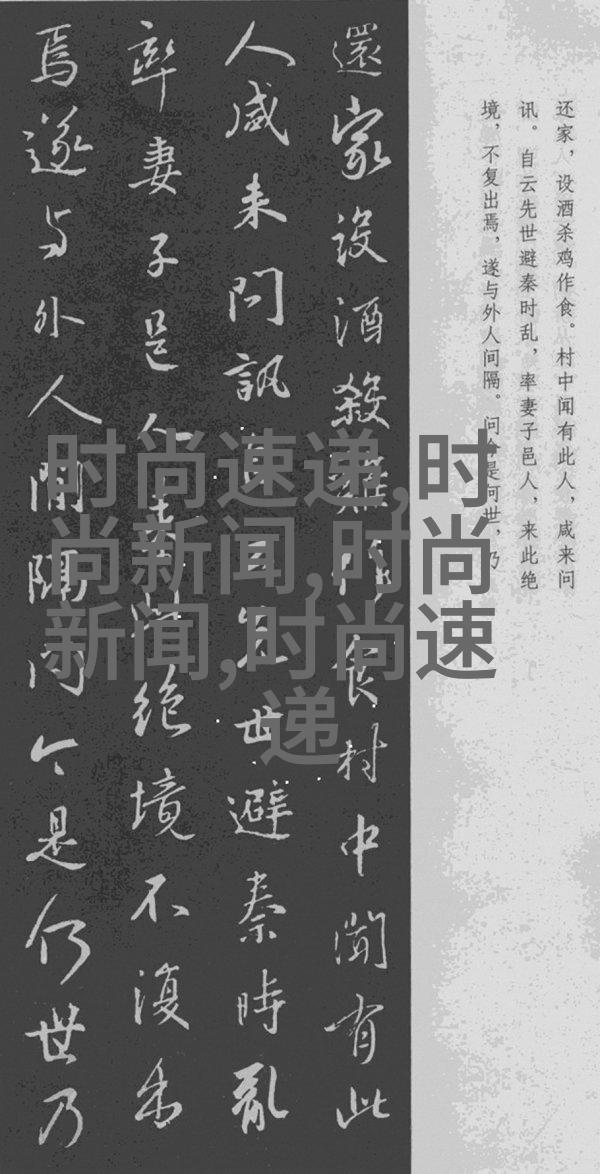 还家，设酒杀鸡作食。村中闻有此人，咸来问
讯。自云先世避秦时乱，率妻子邑人，来此绝
境，不复出焉，遂与外人间隔。问今是何世，乃
還家設酒殺雞作食村中聞有此
人咸来問訊自云先世避秦時亂
率妻子邑人来此絶境不復出
焉遂与外人間隔問今是何世乃
时尚速递,时
尚新闻,时尚
新闻,时尚速
递